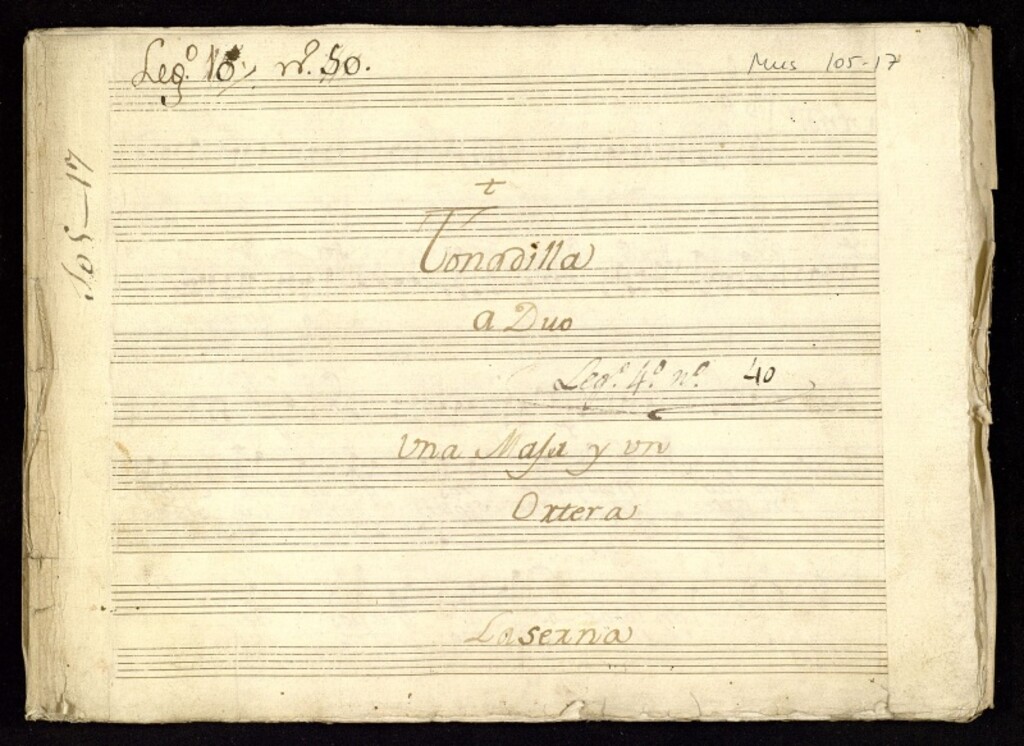 Leg.º 18, n.º 50.
Mus 105-17
105-17
t
Tonadilla
a Duo
Leg.º 4.º n.º 40
Una Maja y un
Ortera
Laserna